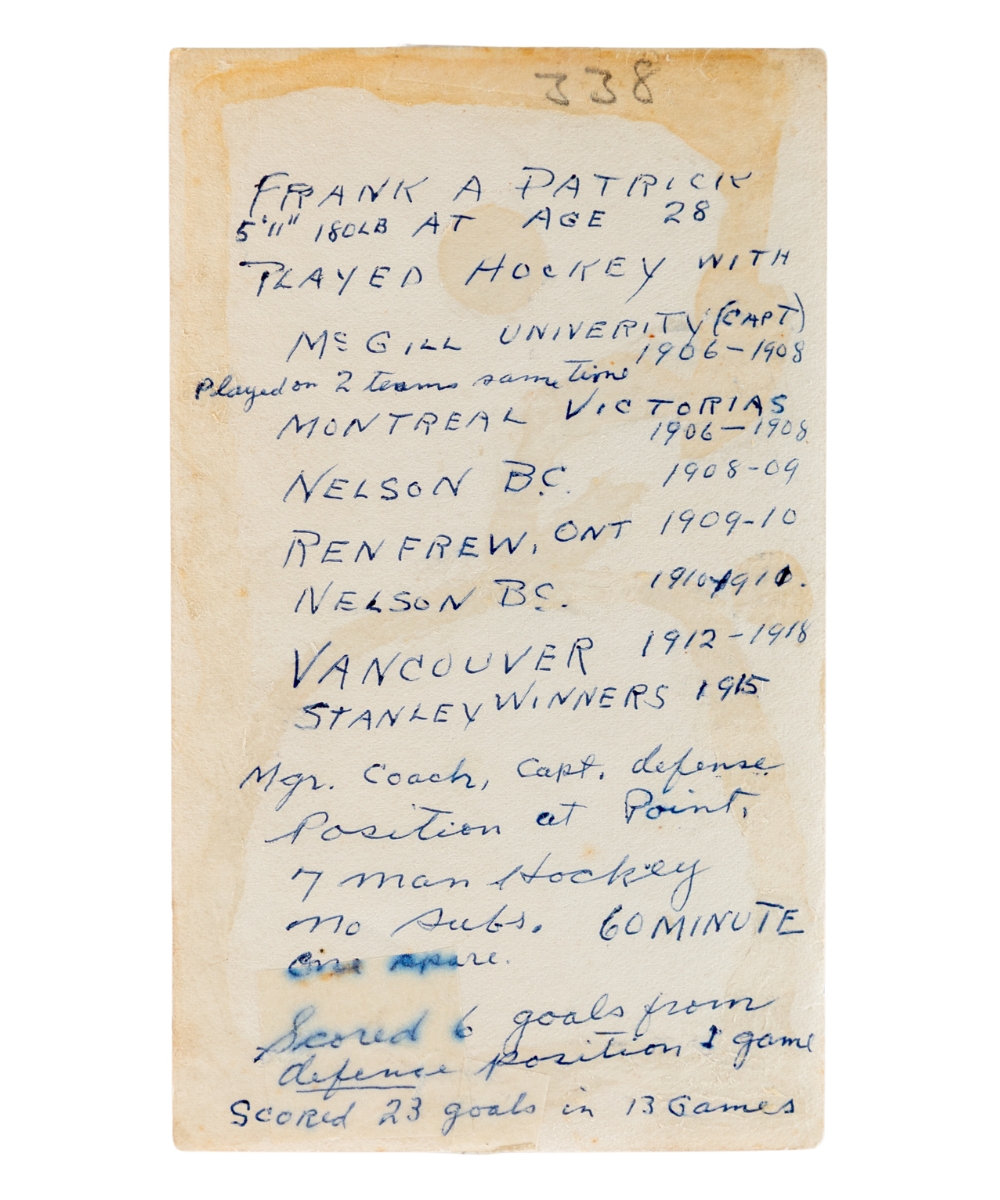 338
FRANK A PATRICK
5'11" 180LB AT AGE 28
PLAYED HOCKEY WITH
McGILL UNIVERITY (CAPT)
1906-1908
Played on 2 teams same time
MONTREAL VICTORIAS
1906-1908
NELSON B.C. 1908-09
RENFREW, ONT 1909-10
NELSON BC.
VANCOUVER 1912-1918
STANLEY WINNERS 1915
Mgr. Coach, Capt. defense
Position at Point,
7 man Hockey
no subs. 60 MINUTE
One spare.
Scored 6 goals from
defense position 1 game
SCORED 23 goals in 13 Games